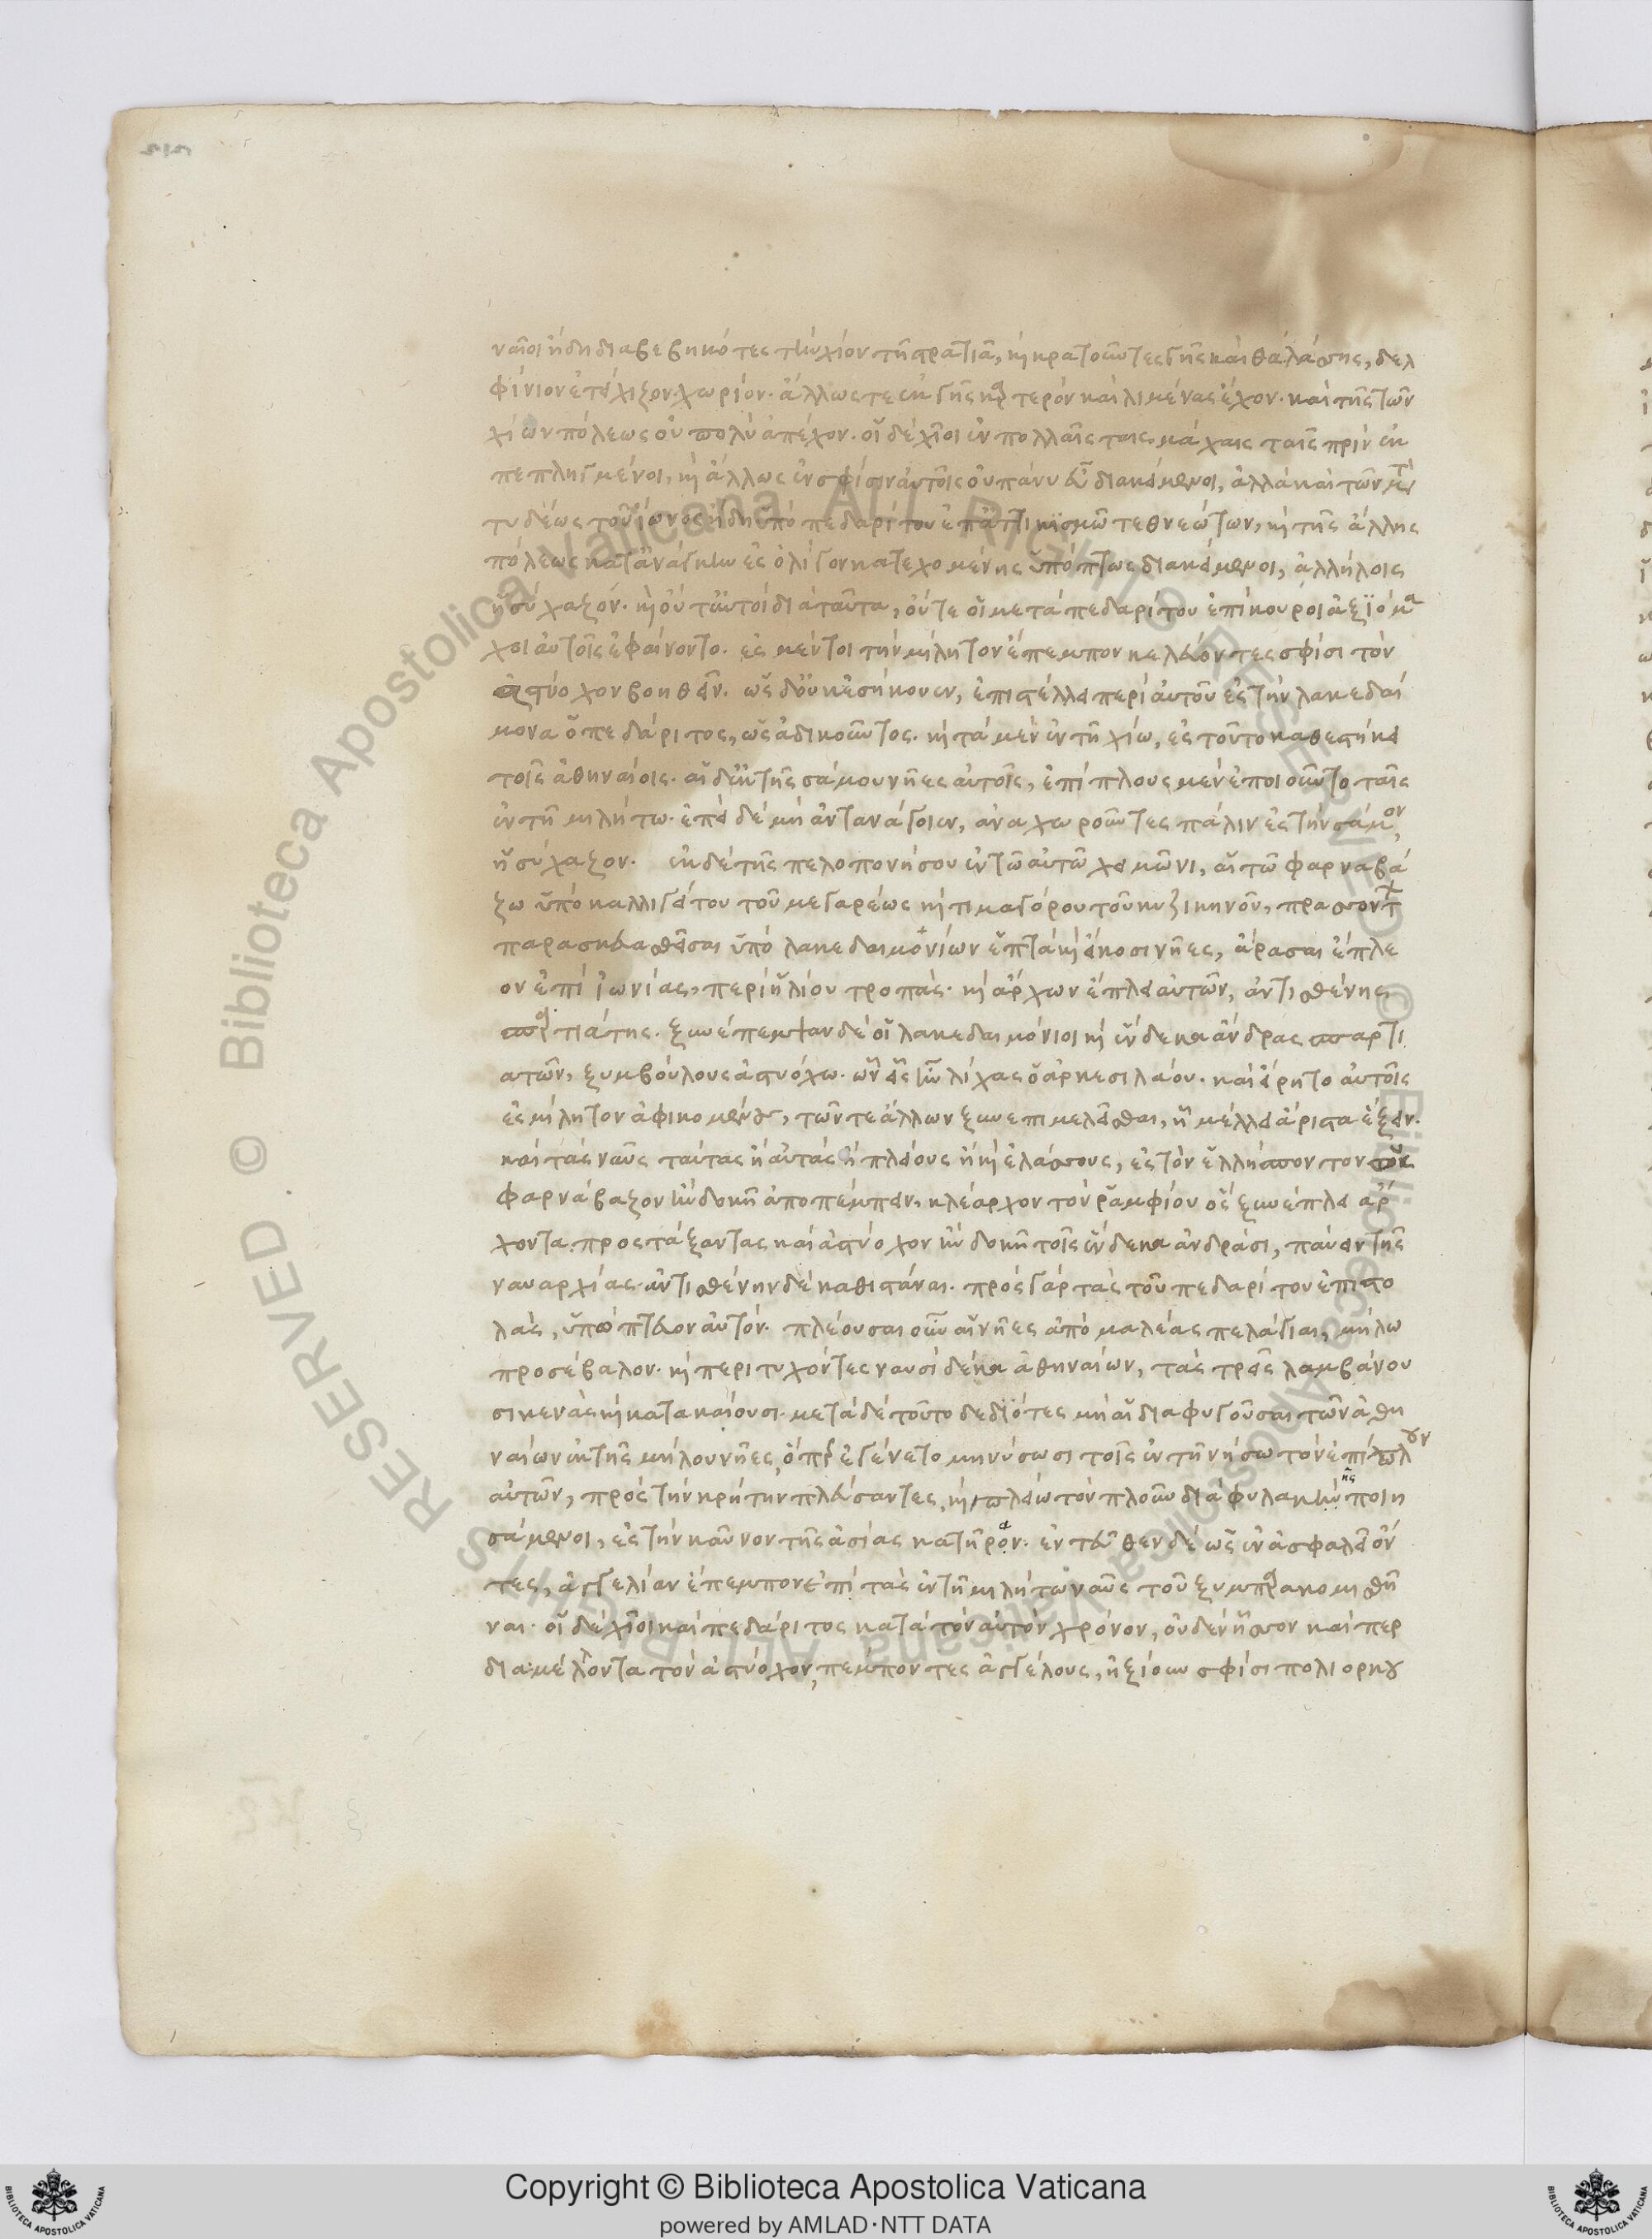 ναῖοι ἤδη διαβεβηκότες τὴν χίον τῆ στρατιᾶ, καὶ κρατοῦντες γῆς καὶ θαλάσσης, δελ
φίνιον ἐτείχιζον χωρίον. ἄλλως τε ἐκ γῆς καρτερὸν καὶ λιμένας ἔχον. καὶ τῆς τῶν
χίων πόλεως οὐ πολὺ ἀπέχον. οἱ δὲ χῖοι ἐν πολλαῖς ταῖς μάχαις ταῖς πρὶν ἐκ
πεπληγμένοι, καὶ ἄλλως ἐν σφίσιν αὐτοῖς οὐ πάνυ εὖ διακείμενοι, ἀλλὰ καὶ τῶν μετὰ
τυδέως τοῦ ἴωνος ἤδη ὑπὸ πεδαρίτου ἐπ' ἀττικισμῶ τεθνεώτων, καὶ τῆς ἄλλης
πόλεως κατ' ἀνάγκην ἐς ὀλίγον κατεχομένης ὑπόπτως διακείμενοι, ἀλλήλοις
ἡσύχαζον. καὶ οὔτ' αὐτοὶ διὰ ταῦτα, οὔτε οἱ μετὰ πεδαρίτου ἐπίκουροι ἀξιόμα
χοι αὐτοῖς ἐφαίνοντο. ἐς μέντοι τὴν μίλητον ἔπεμπον κελεύοντες σφίσι τὸν
ἀστύοχον βοηθεῖν. ὡς δ' οὐκ ἐσήκουεν, ἐπιστέλλει περὶ αὐτοῦ ἐς τὴν λακεδαί
μονα ὁ πεδάριτος, ὡς ἀδικοῦντος. καὶ τὰ μὲν ἐν τῆ χίω, ἐς τοῦτο καθεστήκει
τοῖς ἀθηναίοις. αἱ δ' ἐκ τῆς σάμου νῆες αὐτοῖς, ἐπίπλους μὲν ἐποιοῦντο ταῖς
ἐν τῆ μιλήτω. ἐπεὶ δὲ μὴ ἀντανάγοιεν, ἀναχωροῦντες πάλιν ἐς τὴν σάμον,
ἡσύχαζον. ἐκ δὲ τῆς πελοπονήσου ἐν τῶ αὐτῶ χειμῶνι, αἱ τῶ φαρναβά
ζω ὑπὸ καλλιγείτου τοῦ μεγαρέως καὶ τιμαγόρου τοῦ κυζικηνοῦ, πρασσόντων
παρασκευασθεῖσαι ὑπὸ λακεδαιμονίων ἑπτὰ καὶ εἴκοσι νῆες, ἄρασαι ἔπλε
ον ἐπὶ ἰωνίας, περὶ ἡλίου τροπάς. καὶ ἄρχων ἔπλει αὐτῶν, ἀντισθένης
σπαρτιάτης. ξυνέπεμψαν δὲ οἱ λακεδαιμόνιοι καὶ ἕνδεκα ἄνδρας σπαρτι
ατῶν, ξυμβούλους ἀστυόχω. ὧν εἷς ἦν λίχας ὁ ἀρκεσιλάου. καὶ εἴρητο αὐτοῖς
ἐς μίλητον ἀφικομένοις, τῶν τε ἄλλων ξυνεπιμελεῖσθαι, ἧ μέλλει ἄριστα ἕξειν.
καὶ τὰς ναῦς ταύτας ἢ αὐτὰς ἢ πλείους ἢ καὶ ἐλάσσους, ἐς τὸν ἑλλήσποντον ὡς
φαρνάβαζον ἢν δοκῆ ἀποπέμπειν, κλέαρχον τὸν ῥαμφίου ὃς ξυνέπλει ἄρ
χοντα προστάξαντας καὶ ἀστύοχον ἢν δοκῆ τοῖς ἕνδεκα ἀνδράσι, παύειν τῆς
ναυαρχίας. ἀντισθένην δὲ καθιστάναι. πρὸς γὰρ τὰς τοῦ πεδαρίτου ἐπιστο
λὰς, ὑπώπτευον αὐτόν. πλέουσαι οὖν αἱ νῆες ἀπὸ μαλέας πελάγιαι, μήλω
προσέβαλον. καὶ περιτυχόντες ναυσὶ δέκα ἀθηναίων, τὰς τρεῖς λαμβάνου
σι κενὰς καὶ κατακαίουσι. μετὰ δὲ τοῦτο δεδιότες μὴ αἱ διαφυγοῦσαι τῶν ἀθη
ναίων ἐκ τῆς μήλου νῆες, ὅπερ ἐγένετο μηνύσωσι τοῖς ἐν τῆ νήσω τὸν ἐπίπλουν
αὐτῶν, πρὸς τὴν κρήτην πλεύσαντες, καὶ πλείω τὸν πλοῦν διὰ φυλακῆς ποιη
σάμενοι, ἐς τὴν καῦνον τῆς ἀσίας κατῆρον. ἐντεῦθεν δὲ ὡς ἐν ἀσφαλεῖ ὄν
τες, ἀγγελίαν ἔπεμπον ἐπὶ τὰς ἐν τῆ μιλήτω ναῦς τοῦ ξυμπαρακομισθῆ
ναι. οἱ δὲ χῖοι καὶ πεδάριτος κατὰ τὸν αὐτὸν χρόνον, οὐδὲν ἧσσον καίπερ
διαμέλλοντα τὸν ἀστύοχον, πέμποντες ἀγγέλους, ἠξίουν σφίσι πολιορκου